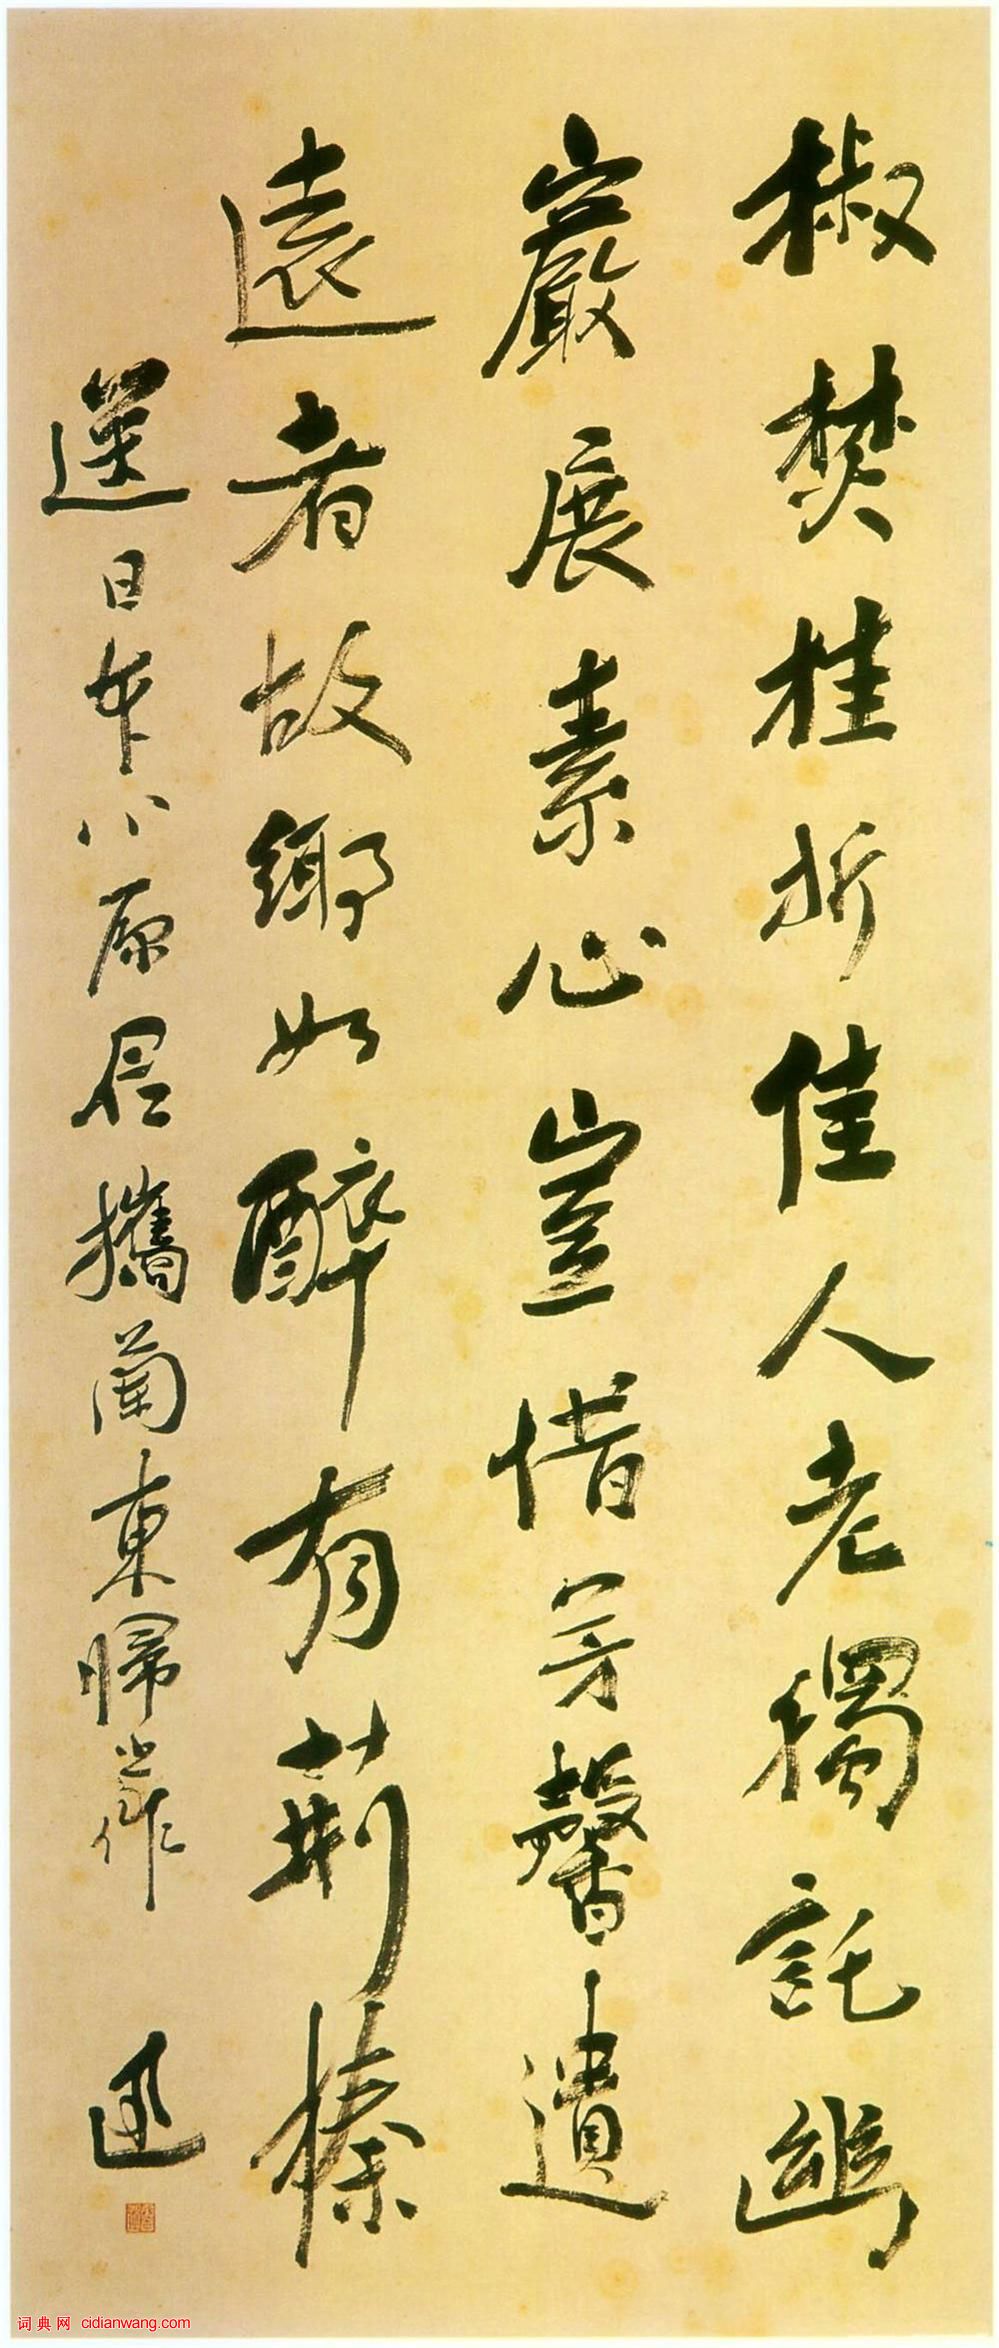 椒焚桂折佳人老獨託幽
巖展素心豈惜芳馨遺
遠者故鄉如醉有荊榛
送日本小原君攜蘭東歸作 迅
词典网 cidianwang.com